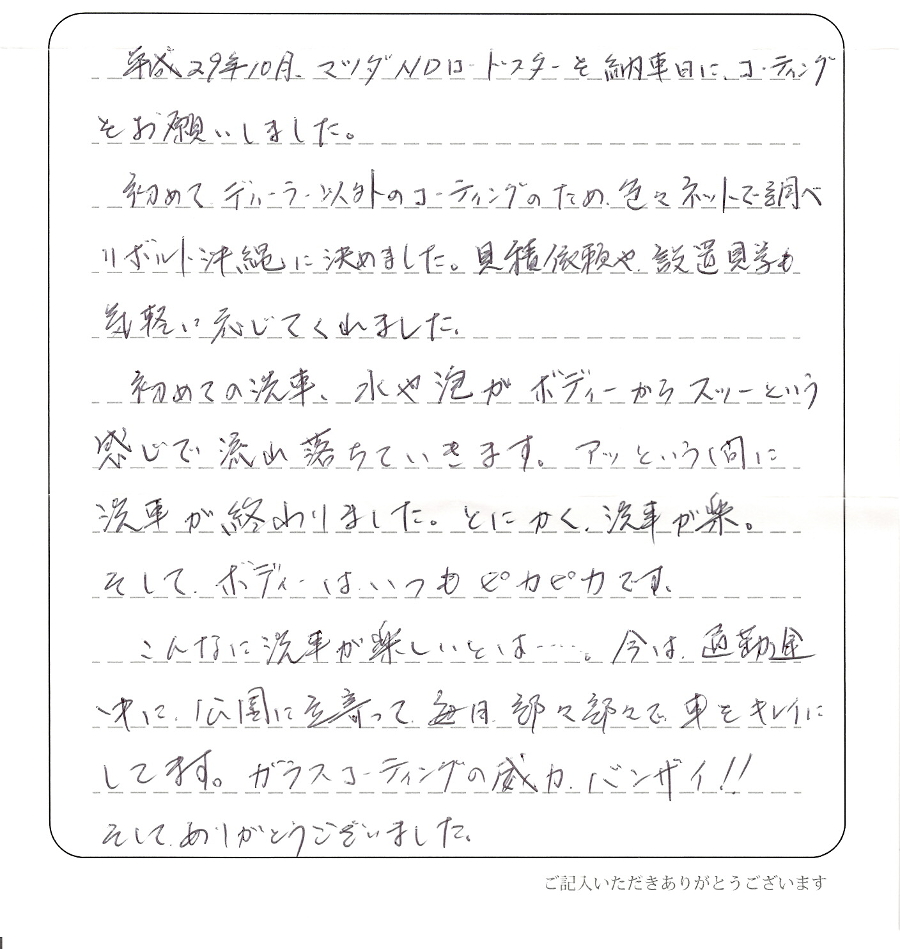 平成29年10月、マツダNDロードスターを納車日に、コーティング
をお願いしました。
初めてディーラー以外のコーティングのため、色々ネットで調べ
リボルト沖縄に決めました。見積依頼や、設置見学も
気軽に応じてくれました。
初めての洗車、水や泡がボディーからスッーという
感じで流れ落ちていきます。アッという間に
洗車が終わりました。とにかく、洗車が楽。
そして、ボディーはいつもピカピカです。
こんなに洗車が楽しいとは……。今は、通勤途
中に、公園に立寄って、毎日、部々部々で、車をキレイに
してます。ガラスコーティングの威力、バンザイ!!
そして、ありがとうございました。
ご記入いただきありがとうございます